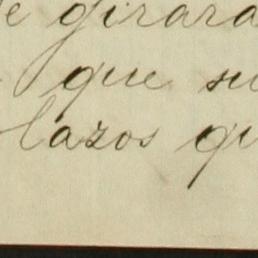 e girara
que su
lazos qu